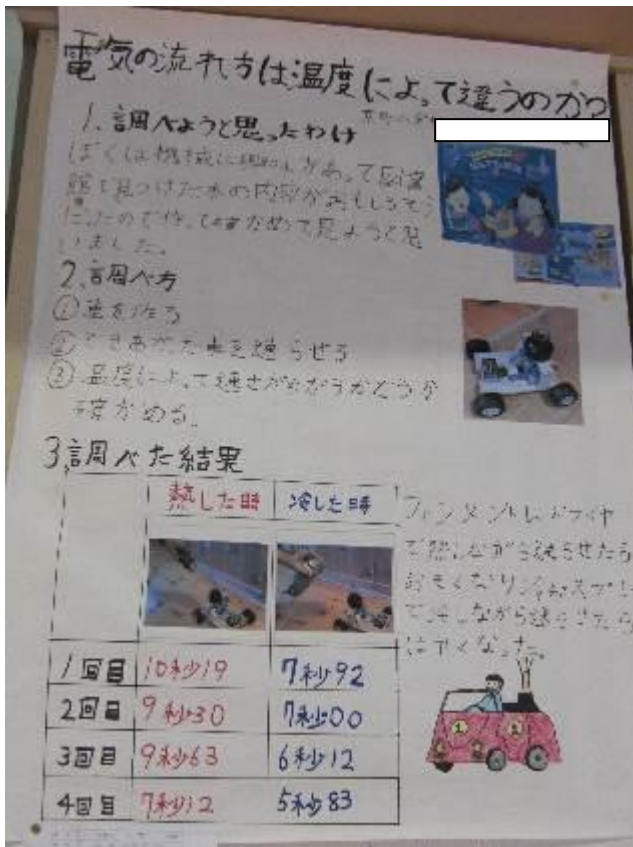 電気の流れ方は温度によって違うのか?
1、調べようと思ったわけ
ぼくは機械に興味があって図書
館で見つけた本の内容がおもしろそう
だったので作って確かめて見ようと思
いました。
2、調べ方
①車を作る
②できあがった車を走らせる
③温度によって速さがちがうかどうか
確かめる。
3、調べた結果
熱した時 冷した時
1回目 10秒19 7秒92
2回目 9秒30 7秒00
3回目 9秒63 6秒12
4回目 7秒12 5秒83
で熱しながら走らせたら
おそくなり冷却スプレー
で冷しながら走らせたら
はやくなった。